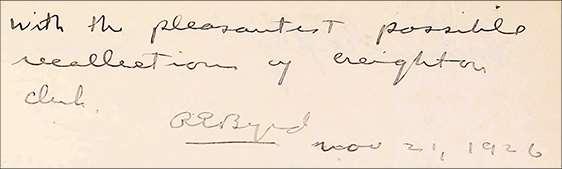 with the pleasantest possible
recollections of creighton
club.
REByrd
nov 21, 1926